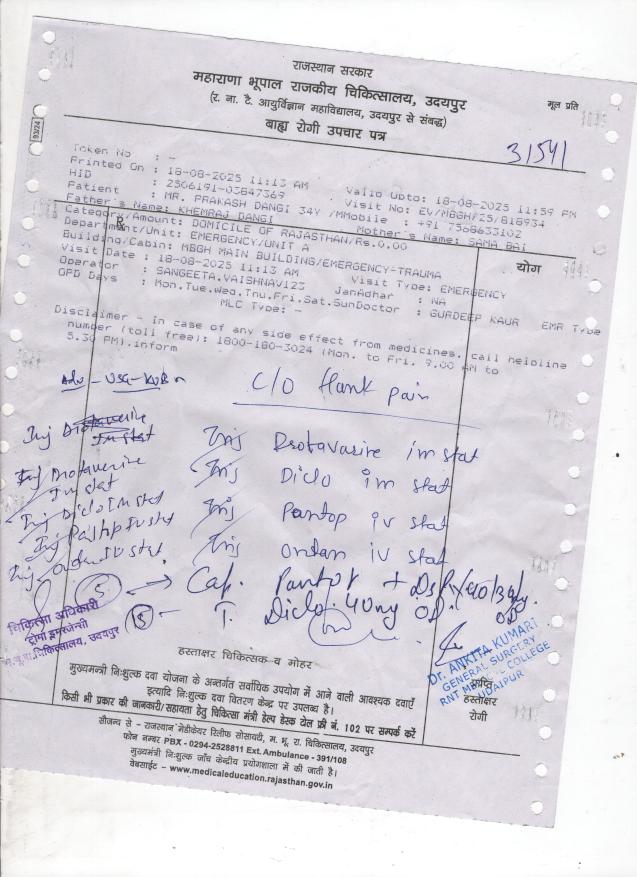 राजस्थान सरकार
महाराणा भूपाल राजकीय चिकित्सालय, उदयपुर
(र. ना. टै. आयुर्विज्ञान महाविद्यालय, उदयपुर से संबद्ध)
बाह्य रोगी उपचार पत्र
मूल प्रति
93/24
31541
Token No : -
Printed On : 18-08-2025 11:13 AM Valid Upto: 18-08-2025 11:59 PM
HID : 2506191-03847369 Visit No: EV/MBGHP25/818934
Patient : MR. PRAKASH DANGI 34Y /M Mobile : +91 7568633102
Father's Name: KHEMRAJ DANGI Mother's Name: SAMA BAI
Category/Amount: DOMICILE OF RAJASTHAN/Rs.0.00
Department/Unit: EMERGENCY/UNIT A
Building/Cabin: MBGH MAIN BUILDING/EMERGENCY-TRAUMA
Visit Date : 18-08-2025 11:13 AM Visit Type: EMERGENCY
Operator : SANGEETA.VAISHNAV123 JanAdhar : NA
OPD Days : Mon.Tue.Wed.Thu.Fri.Sat.Sun Doctor : GURDEEP KAUR EMR Type
MLC Type: -
Rx
योग
Disclaimer - In case of any side effect from medicines. call helpline
number (toll free): 1800-180-3024 (Mon. to Fri. 9.00 AM to
5.30 PM).inform
Adv - USG - KUB
C/O flank pain
Inj Drotaverine
Im stat
Inj Drotaverine
Im stat
Inj Diclo Im stat
Inj Iv stat
Inj Ondem Iv stat
Inj Drotavarire im stat
Inj Diclo im stat
Inj Pantop iv stat
Inj ondan iv stat
5 → Cap. Pantop + DSR 40/30mg OD
5 - T. Diclo 40mg OD
चिकित्सा अधिकारी
ट्रोमा इमरजेन्सी
चिकित्सालय, उदयपुर
Dr. ANKITA KUMARI
GENERAL SURGERY
RNT MEDICAL COLLEGE
UDAIPUR
हस्ताक्षर चिकित्सक व मोहर
हस्ताक्षर
रोगी
मुख्यमन्त्री निःशुल्क दवा योजना के अन्तर्गत सर्वाधिक उपयोग में आने वाली आवश्यक दवाएँ
इत्यादि निःशुल्क दवा वितरण केन्द्र पर उपलब्ध है।
किसी भी प्रकार की जानकारी/सहायता हेतु चिकित्सा मंत्री हेल्प डेस्क टोल फ्री नं. 102 पर सम्पर्क करें
सौजन्य से - राजस्थान मेडीकेयर रिलीफ सोसायटी, म. भू. रा. चिकित्सालय, उदयपुर
फोन नम्बर PBX - 0294-2528811 Ext. Ambulance - 391/108
मुख्यमन्त्री निःशुल्क जाँच केन्द्रीय प्रयोगशाला में की जाती है।
वेबसाईट - www.medicaleducation.rajasthan.gov.in